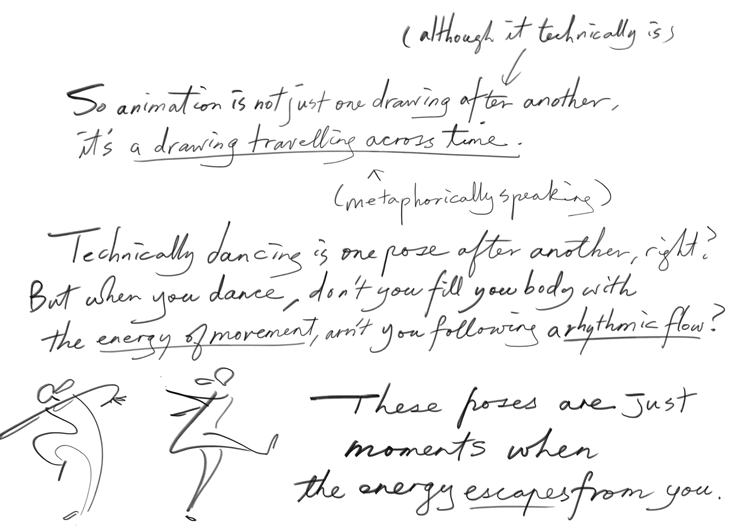 (although it technically is)
So animation is not just one drawing after another,
it's a drawing travelling across time.
(metaphorically speaking)
Technically dancing is one pose after another, right?
But when you dance, don't you fill you body with
the energy of movement, arn't you following a rhythmic flow?
These poses are just
moments when
the energy escapes from you.